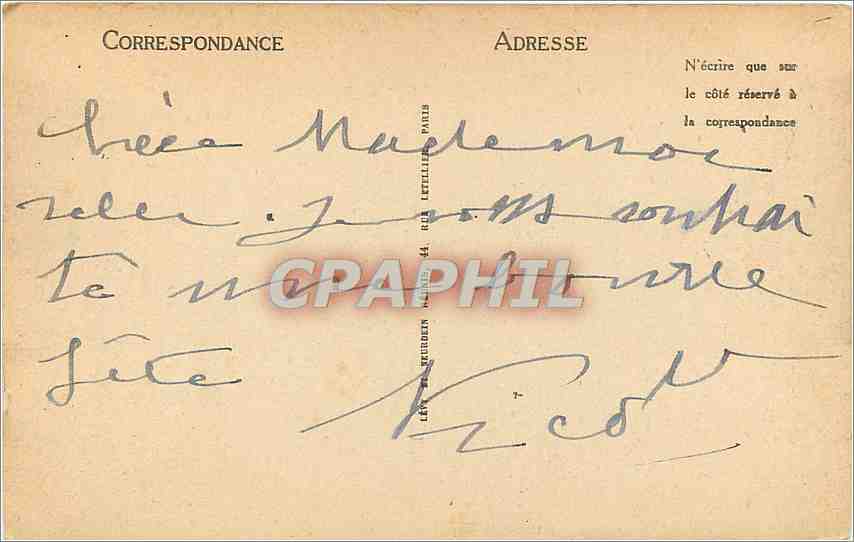 CORRESPONDANCE
ADRESSE
N'écrire que sur
le côté réservé à
la correspondance
Chère Mademoi
selle. Je vous souhai
te une bonne
fête
LÉVY ET NEURDEIN RÉUNIS, 44, RUE LETELLIER, PARIS
CPAPHIL